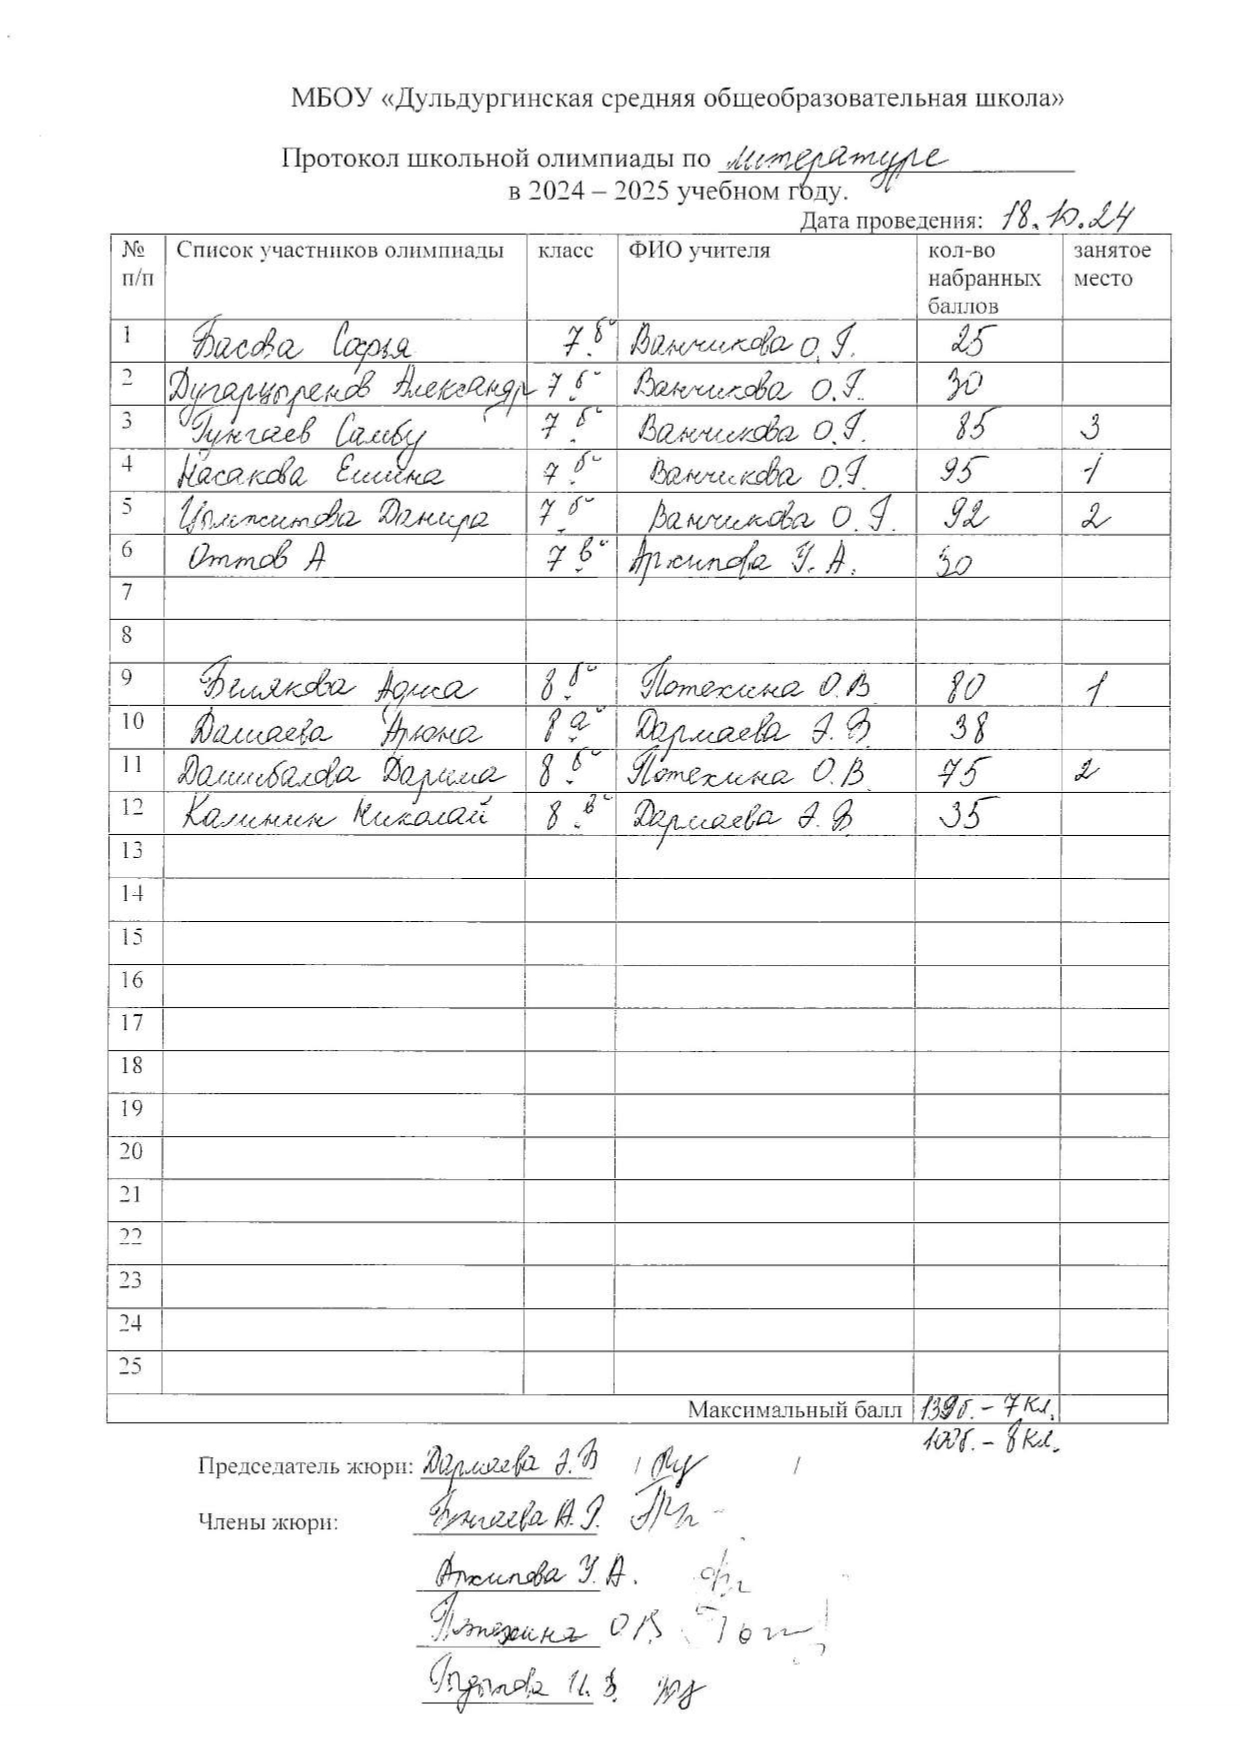 МБОУ «Дульдургинская средняя общеобразовательная школа»
Протокол школьной олимпиады по литературе
в 2024 – 2025 учебном году.
Дата проведения: 18.10.24
№ п/п Список участников олимпиады класс ФИО учителя кол-во набранных баллов занятое место
1 Басова Софья 7 б Ванчикова О.Г. 25
2 Дугарцыренов Александр 7 б Ванчикова О.Г. 30
3 Тунгаев Самбу 7 б Ванчикова О.Г. 85 3
4 Насакова Ешина 7 б Ванчикова О.Г. 95 1
5 Цымпитова Данира 7 б Ванчикова О.Г. 92 2
6 Оттов А 7 в Архипова У.А. 30
7
8
9 Белякова Адиса 8 б Потехина О.В 80 1
10 Дашаева Арюна 8 а Дармаева Э.В 38
11 Дашибалова Дарима 8 б Потехина О.В. 75 2
12 Калинин Николай 8 в Дармаева Э.В 35
13
14
15
16
17
18
19
20
21
22
23
24
25
Максимальный балл 139б. – 7 кл.
100б. – 8 кл.
Председатель жюри: Дармаева Э.В / /
Члены жюри: А.Г.
Архипова У.А.
Потехина О.В